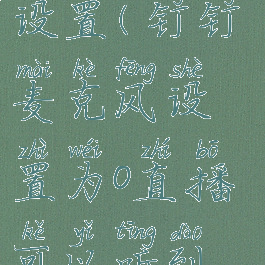 设置(钉钉
mài kè fēng shè
麦克风设
zhì wéi zhí bō
置为0直播
kě yǐ tīng dào
可以听到